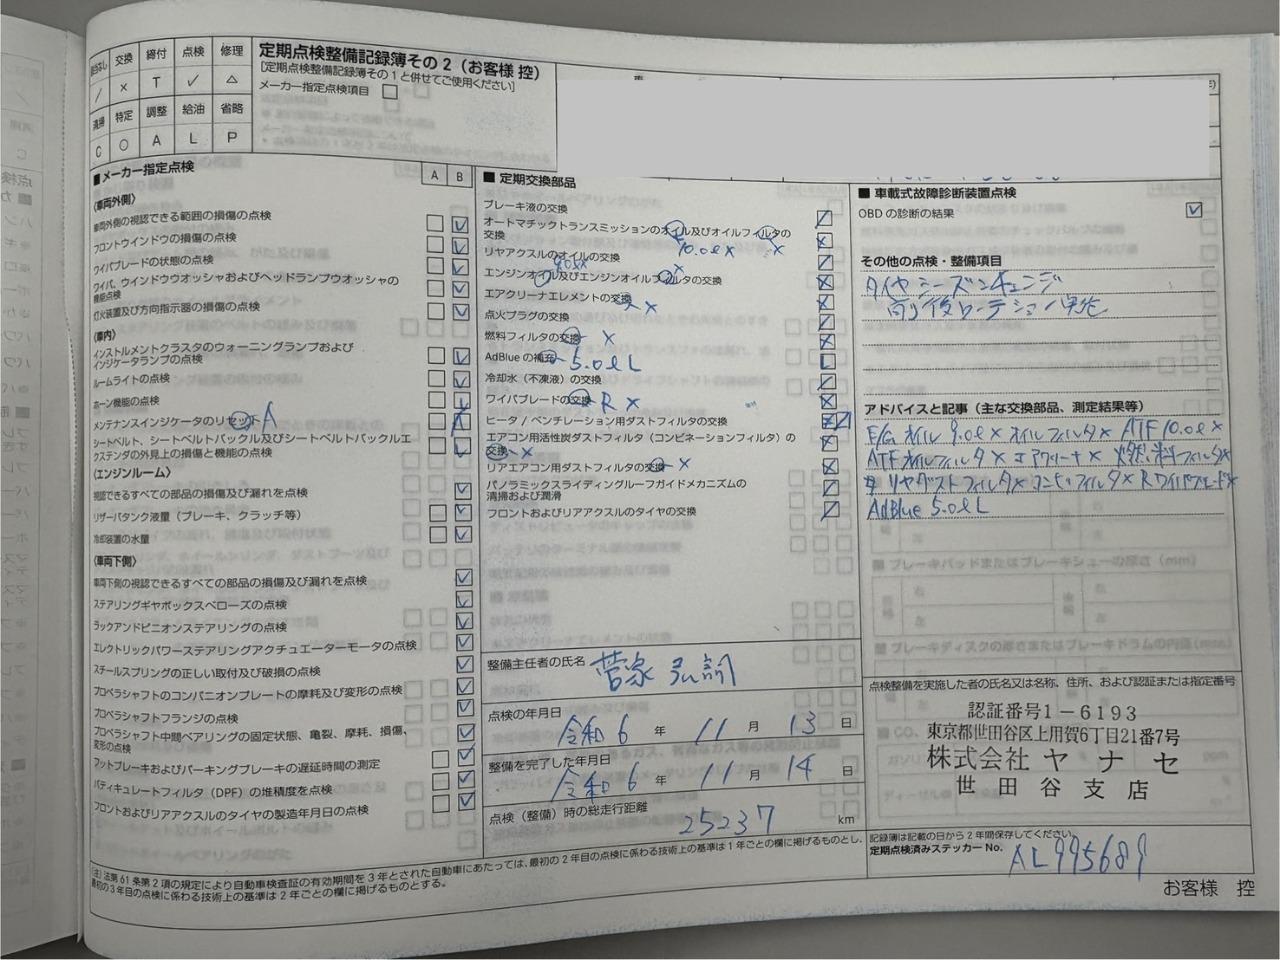 該当なし 交換 締付 点検 修理
/ × T ✓ △
清掃 特定 調整 給油 省略
C ○ A L P
定期点検整備記録簿その2（お客様 控）
［定期点検整備記録簿その1と併せてご使用ください］
メーカー指定点検項目 □
■ メーカー指定点検 A B
〈車両外側〉
車両外側の視認できる範囲の損傷の点検 ✓
フロントウインドウの損傷の点検 ✓
ワイパブレードの状態の点検 ✓
ワイパ、ウインドウウオッシャおよびヘッドランプウオッシャの
機能点検 ✓
灯火装置及び方向指示器の損傷の点検 ✓
〈車内〉
インストルメントクラスタのウォーニングランプおよび
インジケータランプの点検 ✓
ルームライトの点検 ✓
ホーン機能の点検 ✓
メンテナンスインジケータのリセット A A
シートベルト、シートベルトバックル及びシートベルトバックルエ
クステンダの外見上の損傷と機能の点検 ✓
〈エンジンルーム〉
視認できるすべての部品の損傷及び漏れを点検 ✓
リザーバタンク液量（ブレーキ、クラッチ等） ✓
冷却装置の水量 ✓
〈車両下側〉
車両下側の視認できるすべての部品の損傷及び漏れを点検 ✓
ステアリングギヤボックスベローズの点検 ✓
ラックアンドピニオンステアリングの点検 ✓
エレクトリックパワーステアリングアクチュエーターモータの点検 ✓
スチールスプリングの正しい取付及び破損の点検 ✓
プロペラシャフトのコンパニオンプレートの摩耗及び変形の点検 ✓
プロペラシャフトフランジの点検 ✓
プロペラシャフト中間ベアリングの固定状態、亀裂、摩耗、損傷、
変形の点検 ✓
フットブレーキおよびパーキングブレーキの遅延時間の測定 ✓
パティキュレートフィルタ（DPF）の堆積度を点検 ✓
フロントおよびリアアクスルのタイヤの製造年月日の点検 ✓
■ 定期交換部品
ブレーキ液の交換 /
オートマチックトランスミッションのオイル及びオイルフィルタの
交換 10.0ℓ× × ×
リヤアクスルのオイルの交換 /
9.0ℓ× ×
エンジンオイル及びエンジンオイルフィルタの交換 ×
エアクリーナエレメントの交換 × ×
点火プラグの交換 /
燃料フィルタの交換 × ×
AdBlueの補充 5.0ℓL L
冷却水（不凍液）の交換 /
ワイパブレードの交換 R× ×
ヒータ / ベンチレーション用ダストフィルタの交換
エアコン用活性炭ダストフィルタ（コンビネーションフィルタ）の
交換 × ×
リアエアコン用ダストフィルタの交換 × ×
パノラミックスライディングルーフガイドメカニズムの
清掃および潤滑 /
フロントおよびリアアクスルのタイヤの交換 /
整備主任者の氏名 菅家 弘嗣
点検の年月日
令和6 年 11 月 13 日
整備を完了した年月日
令和6 年 11 月 14 日
点検（整備）時の総走行距離
25237 km
■ 車載式故障診断装置点検
OBDの診断の結果 ✓
その他の点検・整備項目
タイヤシーズンチェンジ
前後ローテーション実施
アドバイスと記事（主な交換部品、測定結果等）
E/Gオイル9.0ℓ× オイルフィルタ× ATF 10.0ℓ×
ATFオイルフィルタ× エアクリーナ× 燃料フィルタ×
リヤダストフィルタ× コンビフィルタ× Rワイパブレード×
AdBlue 5.0ℓL
点検整備を実施した者の氏名又は名称、住所、および認証または指定番号
認証番号1－6193
東京都世田谷区上用賀6丁目21番7号
株式会社 ヤナセ
世田谷支店
記録簿は記載の日から2年間保存してください。
定期点検済みステッカー No. AL995689
（注）法第61条第2項の規定により自動車検査証の有効期間を3年とされた自動車にあたっては、最初の2年目の点検に係わる技術上の基準は1年ごとの欄に掲げるものとし、
最初の3年目の点検に係わる技術上の基準は2年ごとの欄に掲げるものとする。
お客様 控